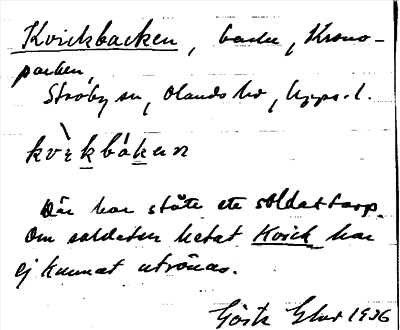 Kvickbacken, backe, Krono-
parken,
Stavby sn, Olands hd, Upps. l.
kvìkbákɛn
Där har stått ett soldattorp.
Om soldaten hetat Kvick har
ej kunnat utrönas.
Gösta 1936